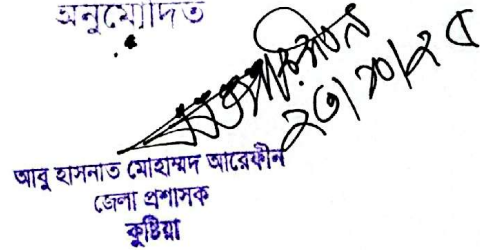 অনুমোদিত
আবু হাসনাত মোহাম্মদ আরেফীন
জেলা প্রশাসক
কুষ্টিয়া